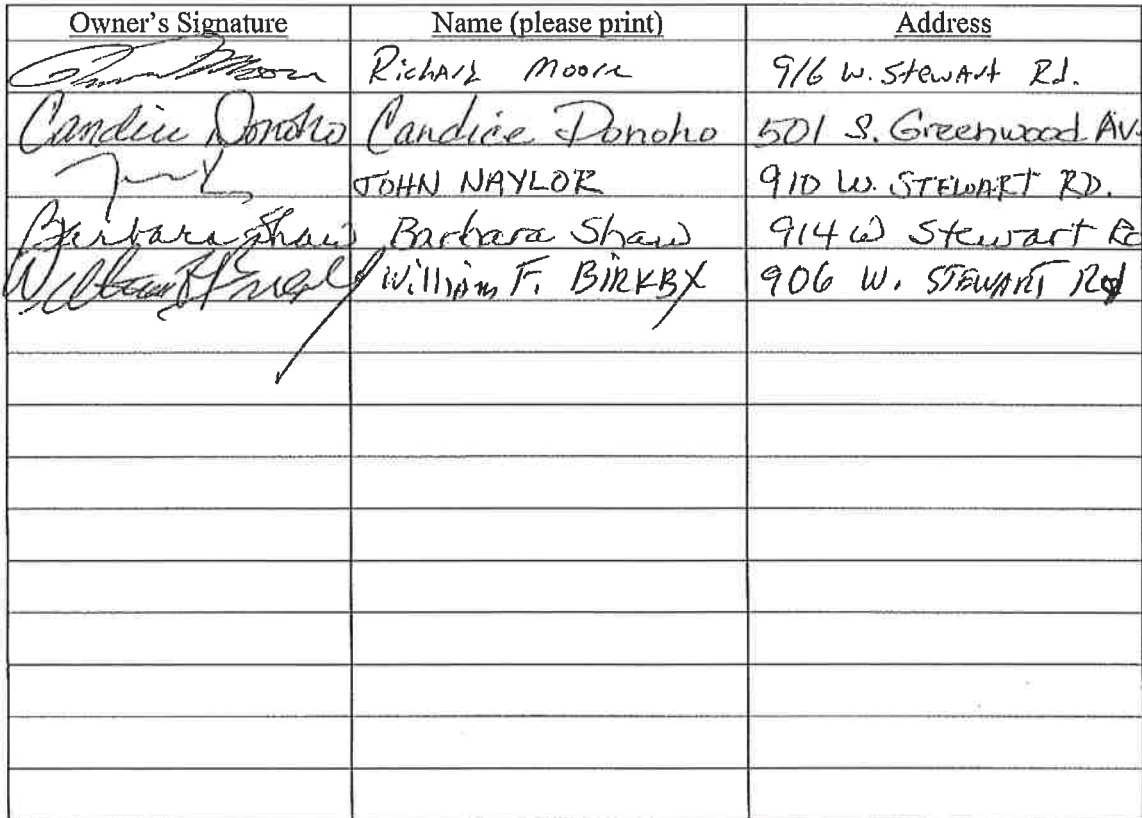 Owner's Signature Name (please print) Address
Moore Richard Moore 916 W. Stewart Rd.
Candice Donoho Candice Donoho 501 S. Greenwood Av.
JOHN NAYLOR 910 W. STEWART RD.
Barbara Shaw Barbara Shaw 914 W Stewart Rd
William F. BIRKBY 906 W. STEWART Rd